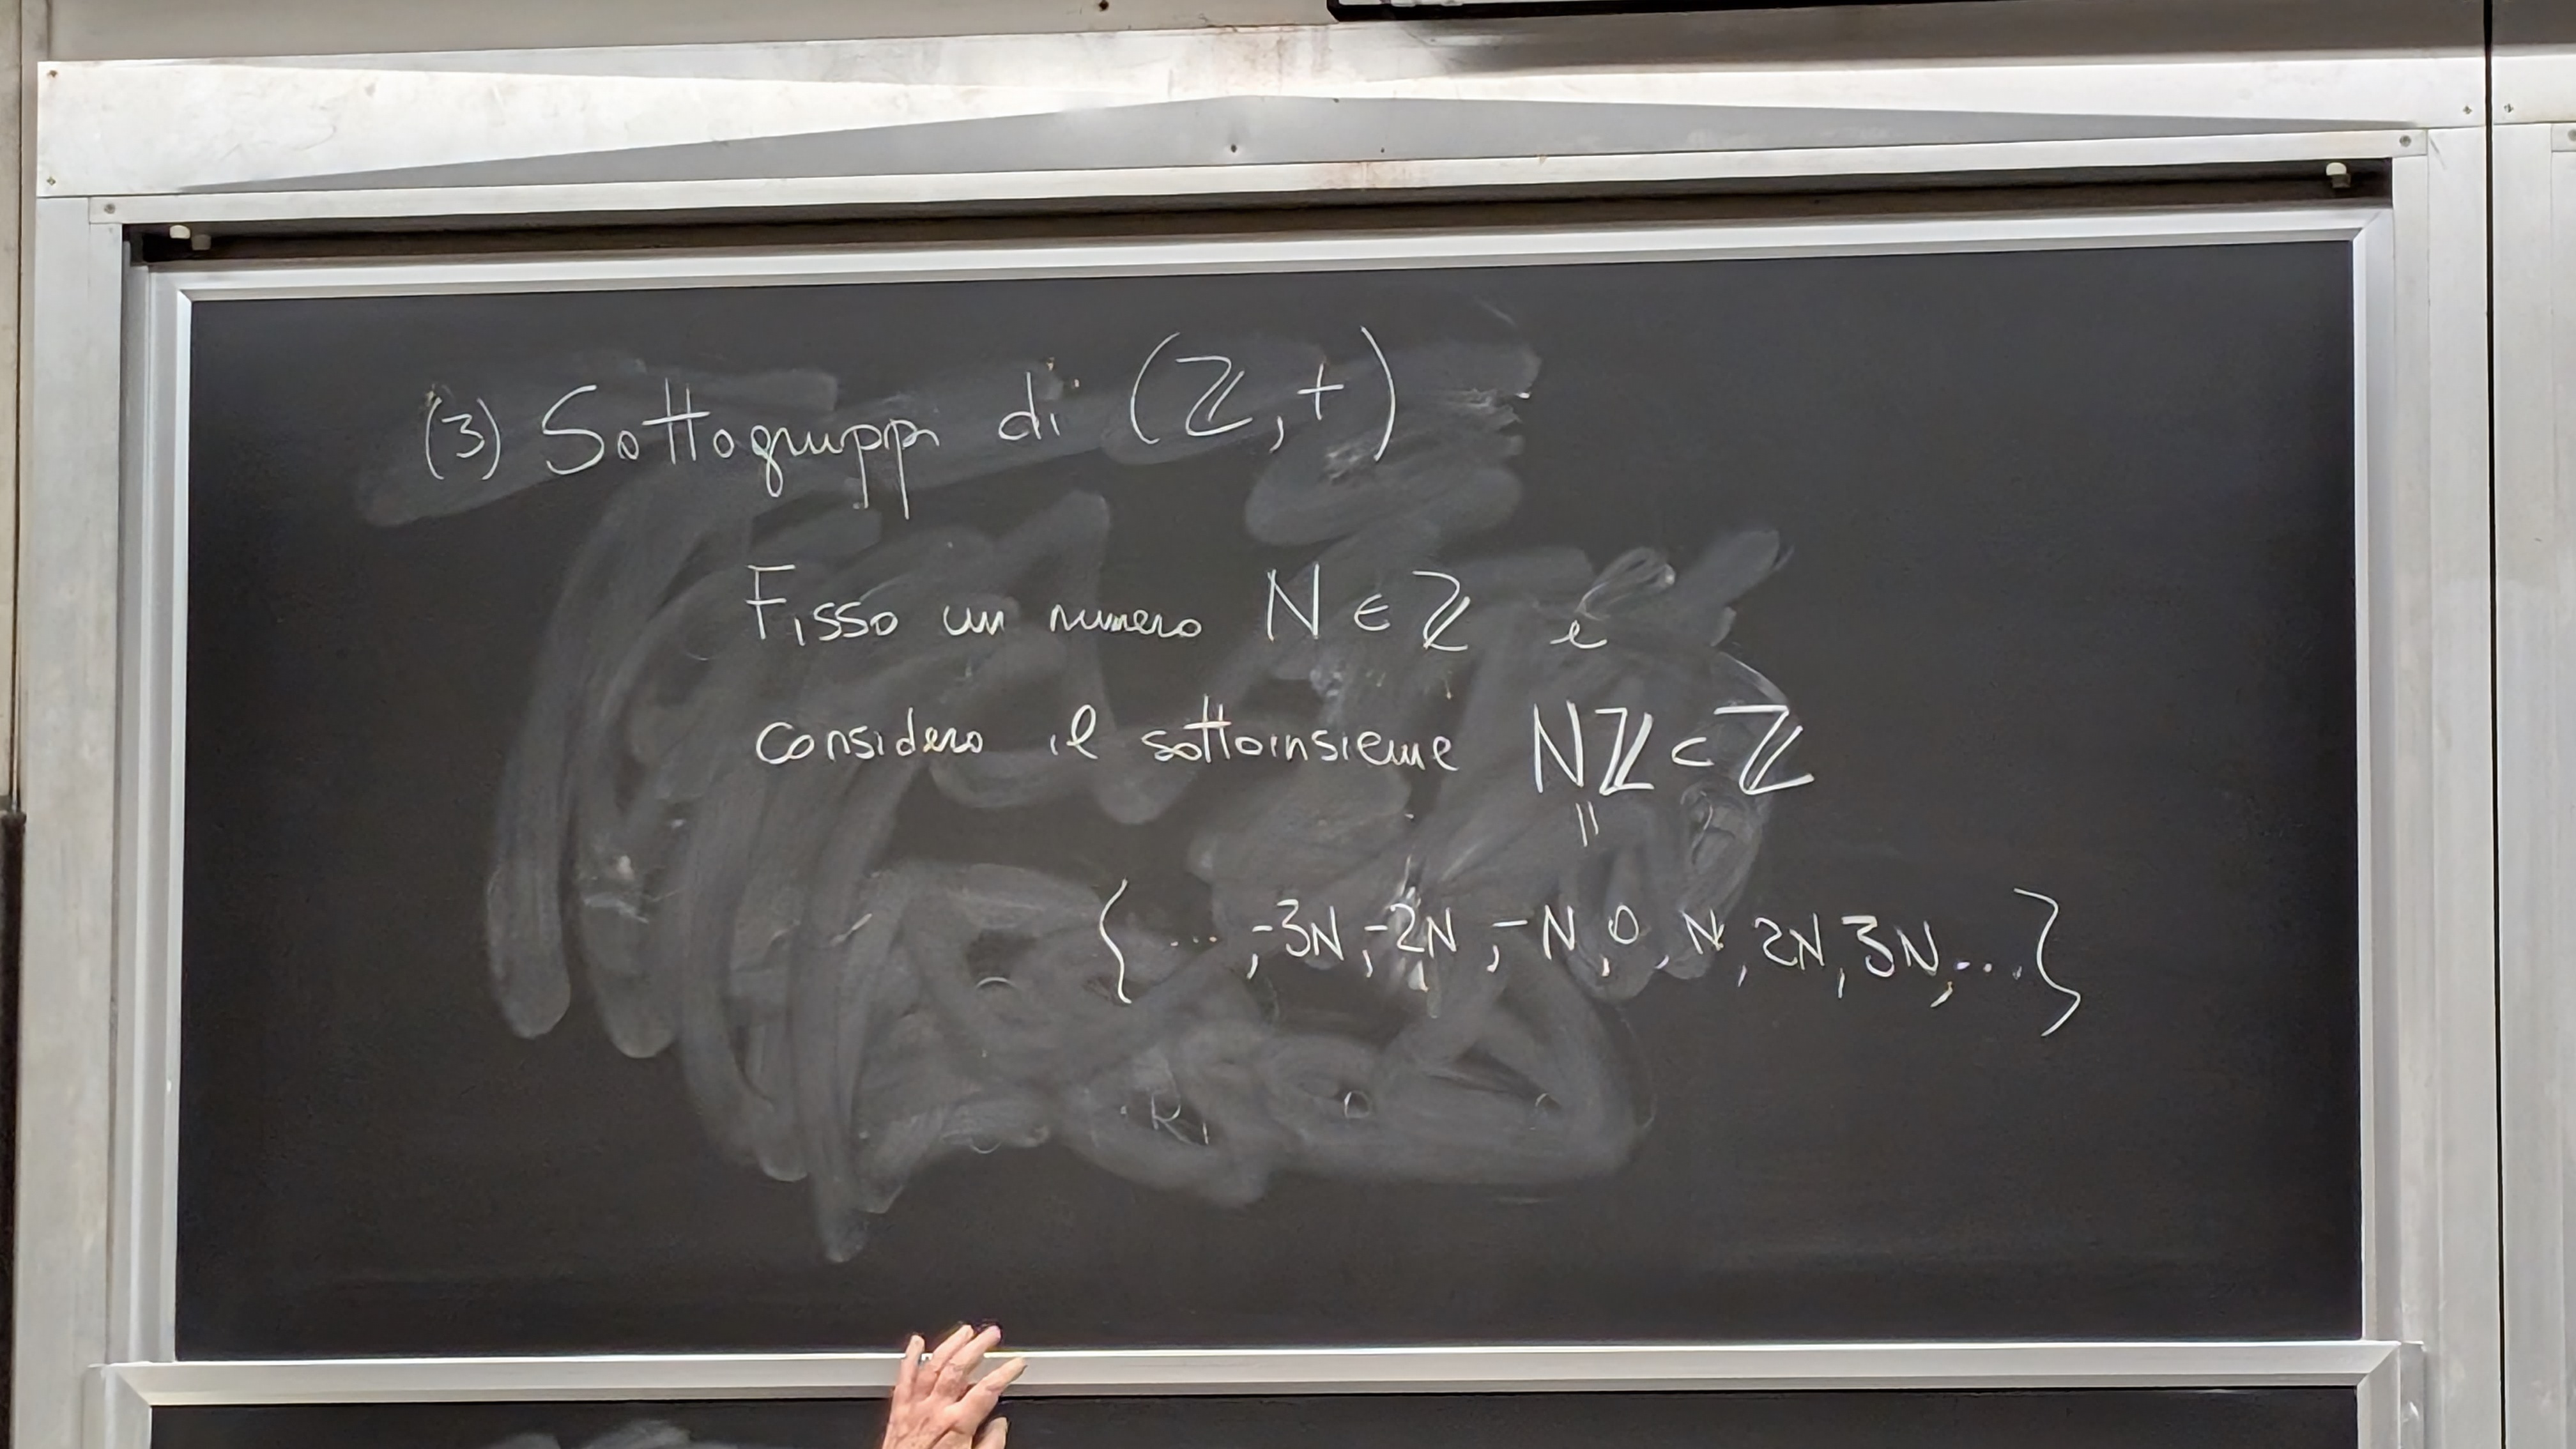 (3) Sottogruppi di (ℤ,+)
Fisso un numero N ∈ ℤ e
considero il sottoinsieme Nℤ ⊂ ℤ
||
{ ... ,-3N,-2N,-N,0,N,2N,3N,...}